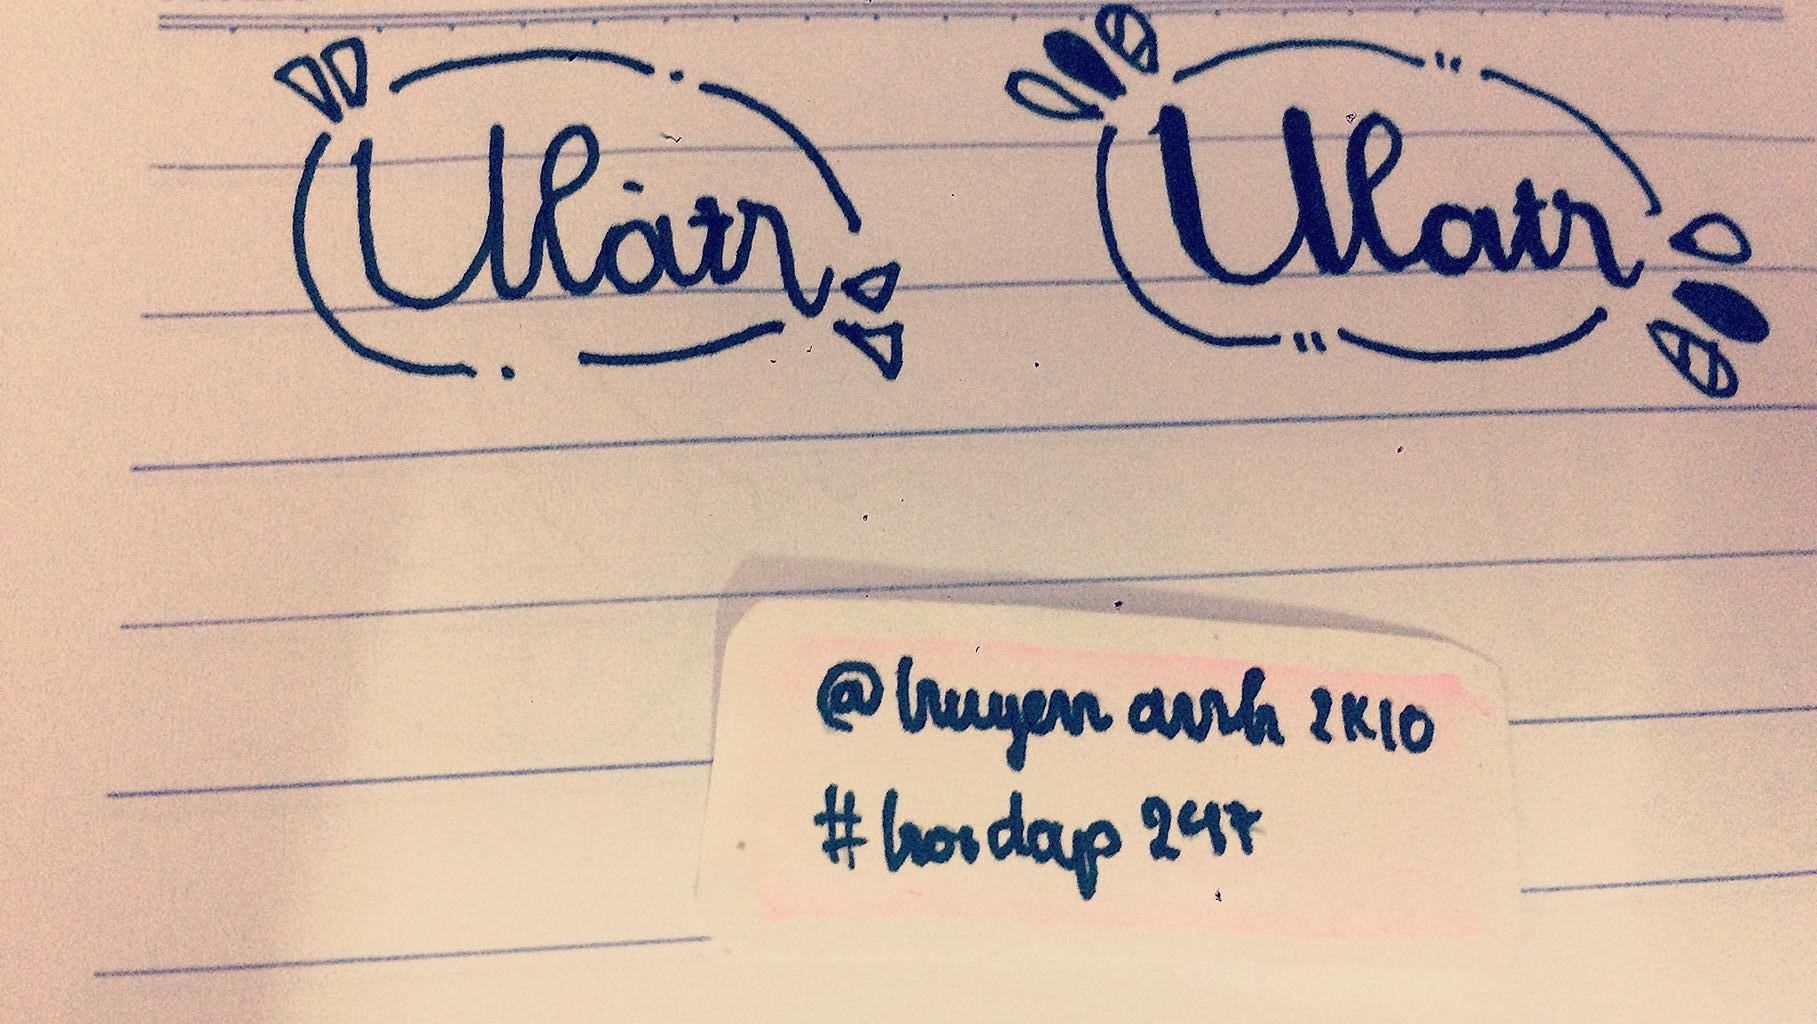 Ulatr Ulatr
@huyen anh 2K10
#hoidap 247